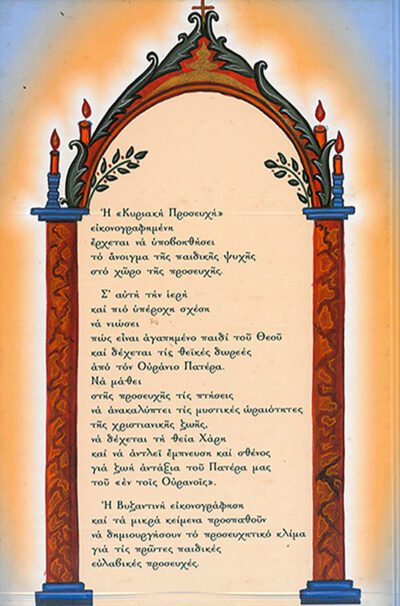 Ἡ «Κυριακή Προσευχή»
εἰκονογραφημένη
ἔρχεται νά ὑποβοηθήσει
τό ἄνοιγμα τῆς παιδικῆς ψυχῆς
στό χῶρο τῆς προσευχῆς.
Σ' αὐτή τήν ἱερή
καί πιό ὑπέροχη σχέση
νά νιώσει
πώς εἶναι ἀγαπημένο παιδί τοῦ Θεοῦ
καί δέχεται τίς θεϊκές δωρεές
ἀπό τόν Οὐράνιο Πατέρα.
Νά μάθει
στῆς προσευχῆς τίς πτήσεις
νά ἀνακαλύπτει τίς μυστικές ὡραιότητες
τῆς χριστιανικῆς ζωῆς,
νά δέχεται τή θεία Χάρη
καί νά ἀντλεῖ ἔμπνευση καί σθένος
γιά ζωή ἀντάξια τοῦ Πατέρα μας
τοῦ «ἐν τοῖς Οὐρανοῖς».
Ἡ Βυζαντινή εἰκονογράφηση
καί τά μικρά κείμενα προσπαθοῦν
νά δημιουργήσουν τό προσευχητικό κλίμα
γιά τίς πρῶτες παιδικές
εὐλαβικές προσευχές.